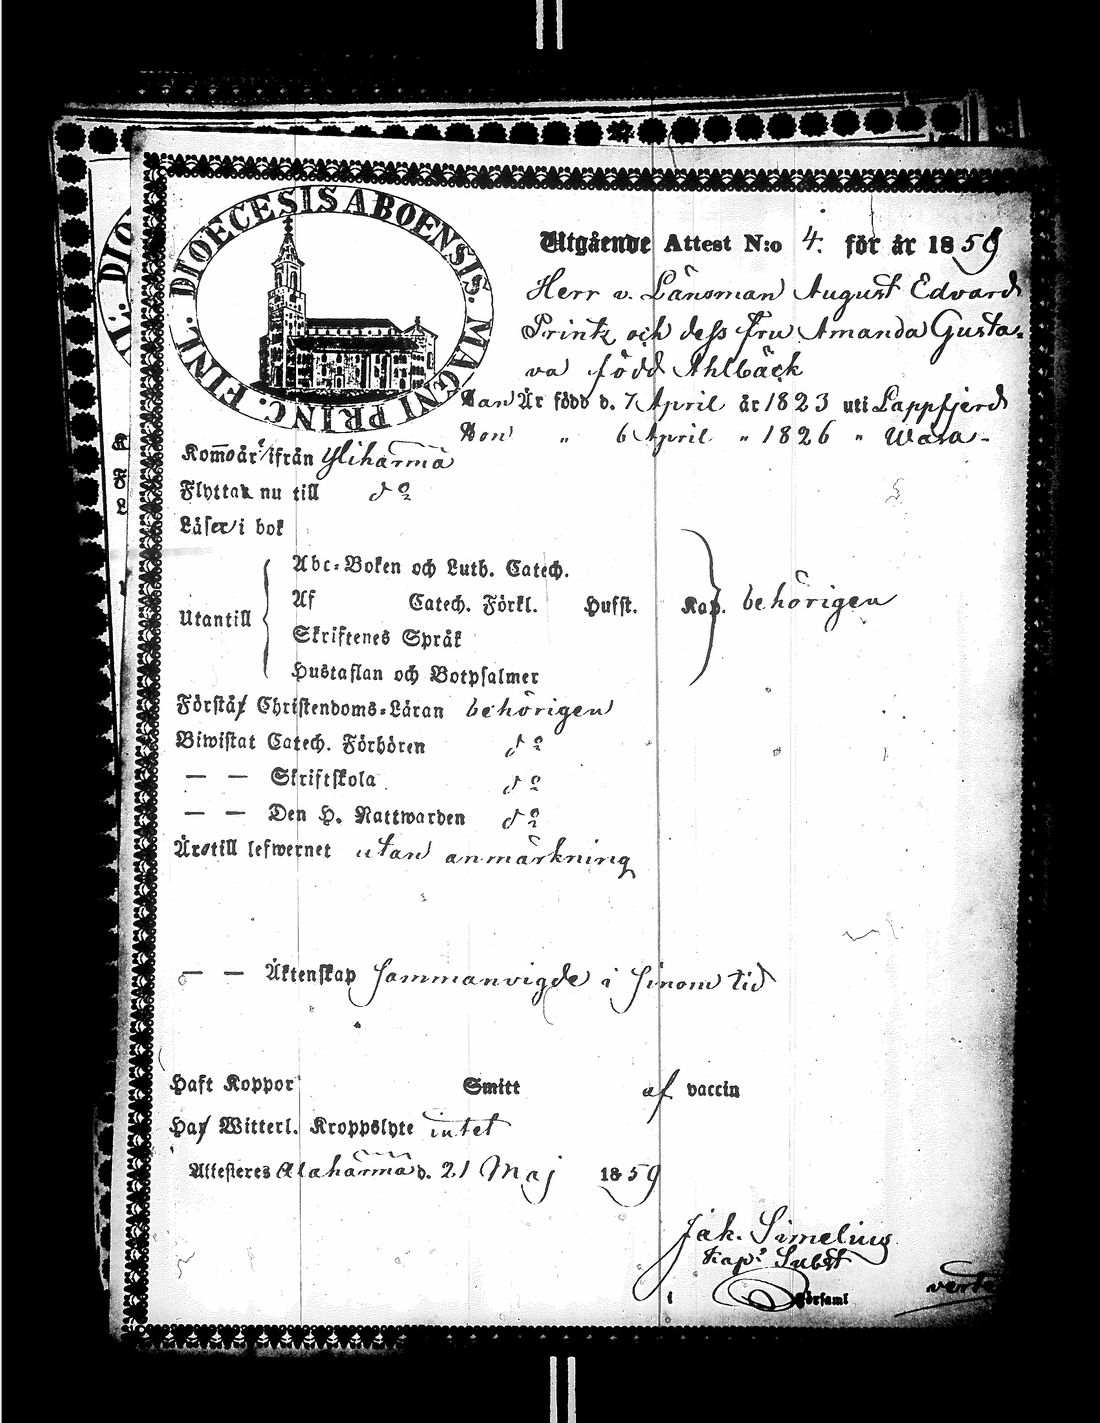 DIOECESIS ABOENSIS. MAGNI PRINC. FINL.
Utgående Attest N:o 4. för år 1859
Herr v. Länsman August Edvard
Printz och dess fru Amanda Gusta-
va född Ahlbäck
Han Är född d. 7 April år 1823 uti Lappfjerd
Hon " 6 April " 1826 " Wasa -
Kom̅o år ifrån Ylihärmä
Flyttar nu till do
Läser i bok
Abc-Boken och Luth. Catech.
Af Catech. Förkl. Hufst. Kap. behörigen
Utantill
Skriftenes Språk
Hustaflan och Botpsalmer
Förstå Christendoms-Läran behörigen
Biwistat Catech. Förhören do
— — Skriftskola do
— — Den H. Nattwarden do
Äro till lefwernet utan anmärkning
— — Äktenskap sammanvigde i sinom tid
Haft Koppor Smitt af vaccin
Haf Witterl. Kroppslyte intet
Attesteres Alahärmä d. 21 Maj 1859
Jak. Simelius
Kap. Subst
i Församl
verte